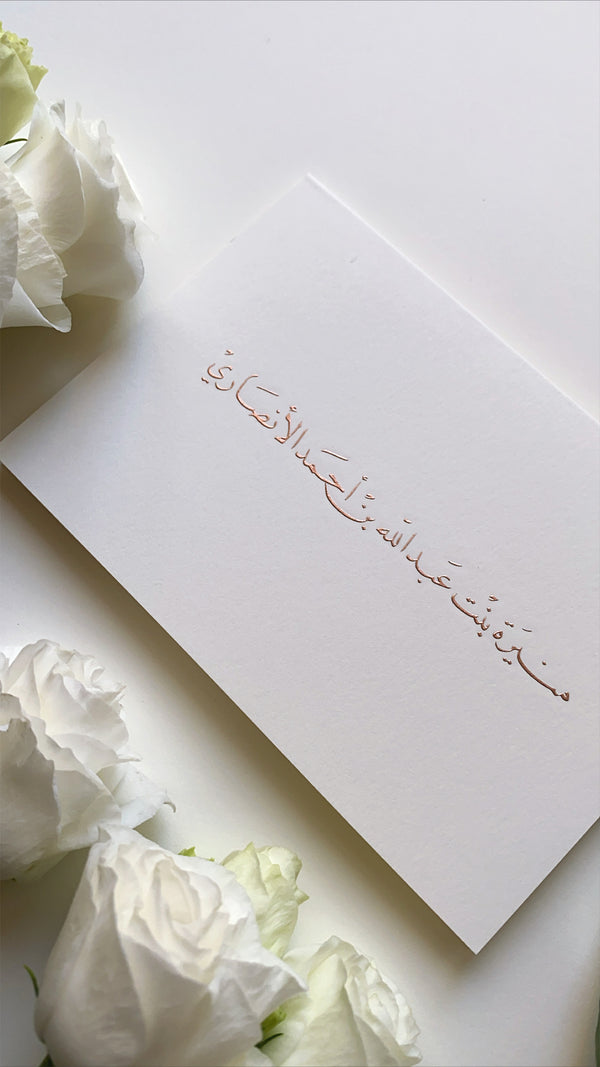 منيرَة بنْت عَبدالله بنْ أحمَد الأنصَاريْ